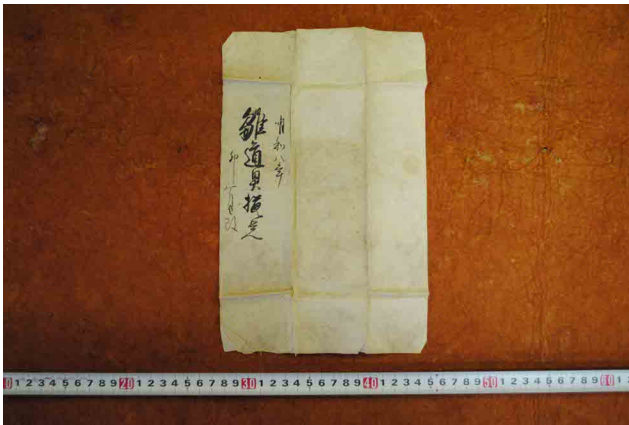 明和八年
雛道具揃
卯月改
1 2 3 4 5 6 7 8 9 20 1 2 3 4 5 6 7 8 9 30 1 2 3 4 5 6 7 8 9 40 1 2 3 4 5 6 7 8 9 50 1 2 3 4 5 6 7 8 9 60 1